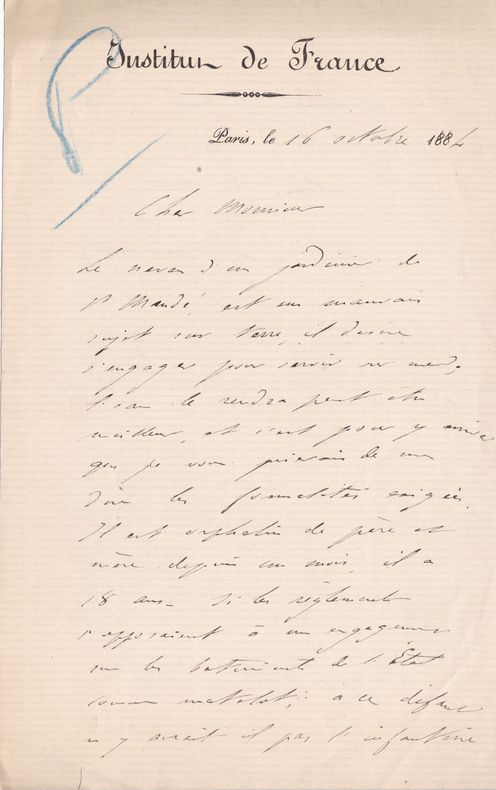 Institut de France
Paris, le 16 octobre 1884
Cher Monsieur
Le neveu d'un jardinier de
St Mandé, est un mauvais
sujet sur terre, il desire
s'engager pour servir sur mer,
l'eau le rendra peut être
meilleur, et c'est pour y arriver
que je vous prierais de me
dire les formalités exigées.
Il est orphelin de père et
mère depuis un mois, il a
18 ans. Si les règlements
s'opposaient à un engagement
sur les batiments de l'État
comme matelot, à ce défaut
n'y aurait il pas l'infanterie